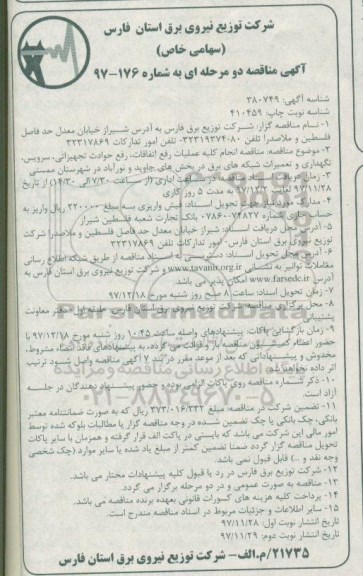 شرکت توزیع نیروی برق استان فارس
(سهامی خاص)
آگهی مناقصه دو مرحله ای به شماره ۱۷۶-۹۷
شناسه آگهی: ۳۸۰۷۴۹
شناسه نوبت چاپ: ۴۱۰۴۵۹
۱- نام مناقصه گزار: شرکت توزیع برق فارس به آدرس شیراز خیابان معدل حد فاصل
فلسطین و ملاصدرا تلفن ۸۰-۳۲۳۱۹۳۷۴ تلفن امور تدارکات ۳۲۳۱۷۸۶۹
۲- موضوع مناقصه: مناقصه انجام کلیه عملیات رفع اتفاقات، رفع حوادث تجهیزاتی، سرویس،
نگهداری و تعمیرات شبکه های برق در بخش های جاوید و نورآباد در شهرستان ممسنی
از تاریخ
۹۷/۱۱/۲۸ لغایت ۹۷/۱۲/۲ به مدت ۵ روز کاری
۴- مدارک مورد نیاز جهت تحویل اسناد: فیش واریزی به مبلغ ۲۲۰۰۰۰ ریال واریز به
حساب جاری شماره ۰۷۸۶۰۰۷۴۸۲۷ بانک تجارت شعبه فلسطین شیراز
۵- آدرس محل دریافت اسناد: شیراز خیابان معدل حد فاصل فلسطین و ملاصدرا شرکت
توزیع نیروی برق استان فارس- امور تدارکات تلفن ۳۲۳۱۷۸۶۹
۶- آدرس محل تحویل اسناد: دسترسی به اسناد مناقصه از طریق شبکه اطلاع رسانی
معاملات توانیر به نشانی www.tavanir.org.ir و شرکت توزیع نیروی برق استان فارس به
آدرس www.farsedc.ir امکان پذیر می باشد.
۷- زمان تحویل اسناد: ساعت ۸ صبح روز شنبه مورخ ۹۷/۱۲/۱۸
۸- محل برگزاری مناقصه: شرکت توزیع نیروی برق استان فارس- طبقه اول- دفتر معاونت
پشتیبانی
۹- زمان بازگشایی پاکات: پیشنهادهای واصله ساعت ۱۰:۴۵ روز شنبه مورخ ۹۷/۱۲/۱۸ با
حضور اعضاء کمیسیون مناقصه باز و قرائت می گردد، به پیشنهادهای فاقد امضاء، مشروط،
مخدوش و پیشنهاداتی که بعد از موعد مقرر در بند ۷ آگهی مناقصه واصل شود ترتیب
اثر داده نخواهد شد.
۱۰- ذکر شماره مناقصه روی پاکات الزامی بوده و حضور پیشنهاد دهندگان در جلسه
آزاد است.
۱۱- تضمین شرکت در مناقصه: مبلغ ۳۷۳/۰۱۶/۲۳۲ ریال که به صورت ضمانتنامه معتبر
بانکی، چک بانکی یا چک تضمین شده در وجه مناقصه گزار یا مطالبات بلوکه شده توسط
امور مالی این شرکت می باشد که بایستی در پاکت الف قرار گرفته و همزمان با سایر پاکات
تحویل مناقصه گزار گردد ضمنا تضمین کمتر از مبلغ یاد شده یا سایر موارد (چک شخصی
وجه نقد و ...) قابل قبول نمی باشد.
۱۲- شرکت توزیع برق فارس در رد یا قبول کلیه پیشنهادات مختار می باشد.
۱۳- مناقصه به صورت عمومی و در دو مرحله برگزار می گردد.
۱۴- پرداخت کلیه هزینه های کسورات قانونی بعهده برنده مناقصه می باشد.
۱۵- سایر اطلاعات و جزئیات مربوط در اسناد مناقصه مندرج است.
تاریخ انتشار نوبت اول: ۹۷/۱۱/۲۸
تاریخ انتشار نوبت دوم: ۹۷/۱۱/۲۹
۲۱۷۳۵/م.الف- شرکت توزیع نیروی برق استان فارس